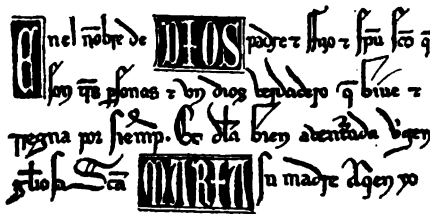 En el nõbre de DIOS padre τ fijo τ spũ scõ q̃
son trẽs psonas τ vn dios verdadero q̃ biue τ
rregna por siemp. Et dla bien auenturada v'gen
gl'iosa scã MARIA su madre Aqen yo